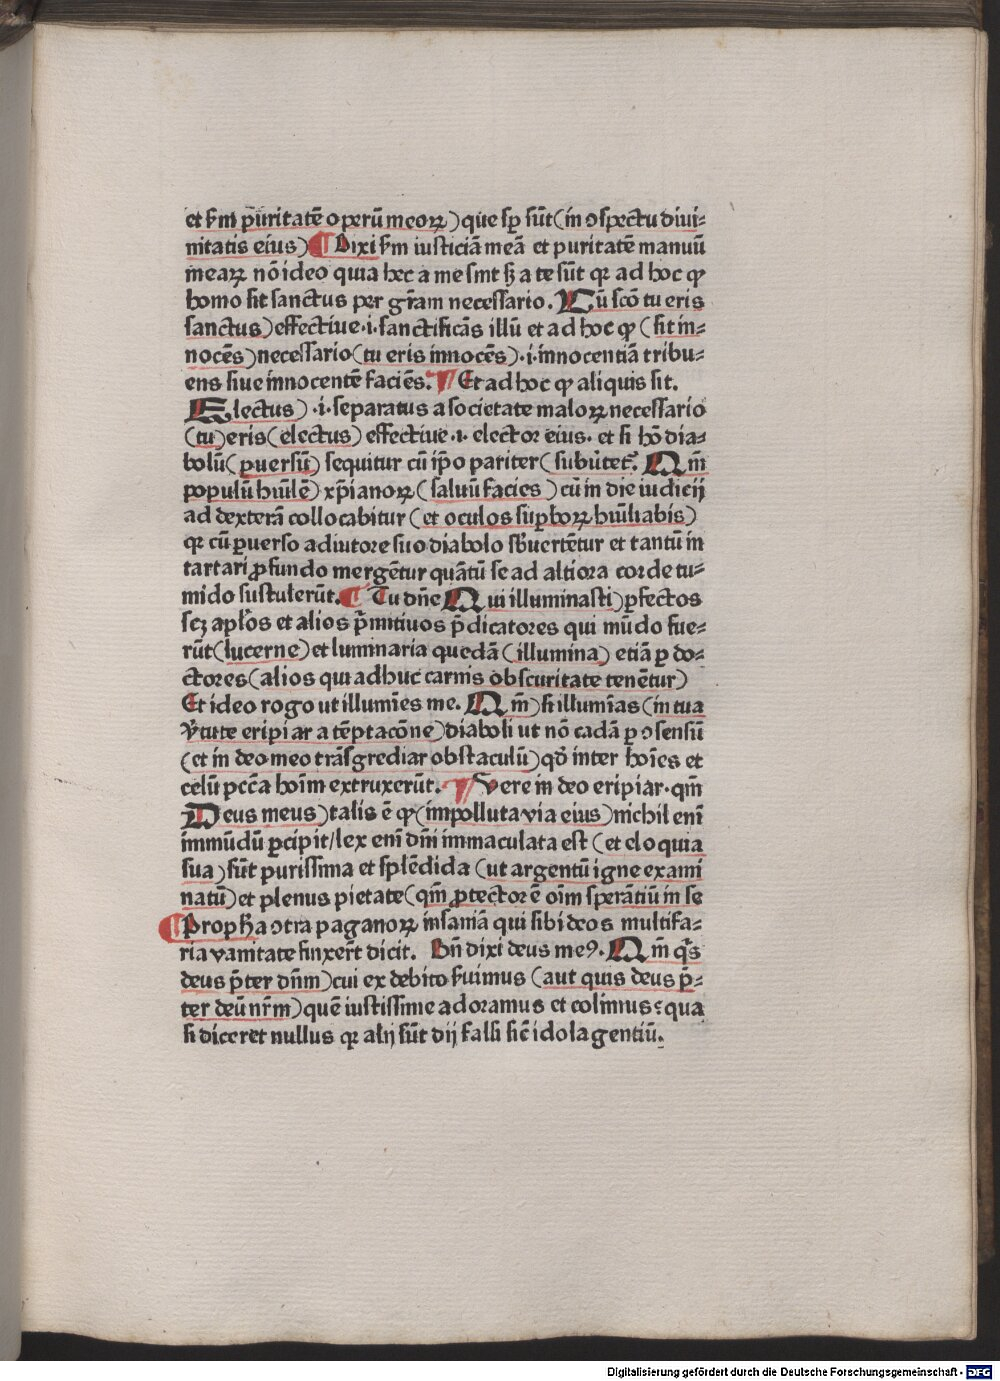 et ẜm puritatē operū meoꝝ) que sp̱ sūt (in ꝯspectu diui-
nitatis eius) ¶ Dixi ẜm iusticiā meā et puritatē manuū
mearꝝ nō ideo quia hec a me sint sꝫ a te sūt qꝛ ad hoc ꝙ
homo sit sanctus per gr̄am necessario. Cū scō tu eris
sanctus) effectiue .i. sanctificās illū et ad hoc ꝙ (sit in-
nocēs) necessario (tu eris innocēs) .i. innocentiā tribu-
ens siue innocentē faciēs. ¶ Et ad hoc ꝙ aliquis sit.
Electus) .i. separatus a societate maloꝝ necessario
(tu) eris (electus) effectiue .i. elector eius. et si hō dia-
bolū (ꝑuersū) sequitur cū ip̄o pariter (subu̓tet̄. Qm̄
populū hūilē) xp̄ianoꝝ (saluū facies) cū in die iudicij
ad dexterā collocabitur (et oculos suꝑboꝝ hūiliabis)
qꝛ cū ꝑuerso adiutore suo diabolo sb̓uertētur et tantū in
tartari ꝓfundo mergētur quātū se ad altiora corde tu-
mido sustulerūt. ¶ Tu dn̄e Qui illuminasti) ꝑfectos
scꝫ apl̓os et alios p̄mitiuos p̄dicatores qui mūdo fue-
rūt (lucerne) et luminaria quedā (illumina) etiā ꝑ do-
ctores (alios qui adhuc carnis obscuritate tenētur)
Et ideo rogo ut illumīes me. Qm̄) si illumīas (in tua
v̓tute eripiar a tēptacōne) diaboli ut nō cadā ꝑ ꝯsensū
(et in deo meo trāsgrediar obstaculū) qd̓ inter hoīes et
celū pcc̄a hoīm extruxerūt. ¶ Vere in deo eripiar. qm̄
Deus meus) talis ē ꝙ (impolluta via eius) nichil enī
immūdū ꝑcipit / lex enī dn̄i immaculata est (et eloquia
sua) sūt purissima et splēdida (ut argentū igne exami
natū) et plenus pietate (qm̄ ꝓtector ē oīm sperātiū in se
¶ Proph̄a ꝯtra paganoꝝ insaniā qui sibi deos multifa-
ria vanitate finxer̄t dicit. Bn̄ dixi deus meꝰ. Qm̄ qͥs
deus p̄ter dn̄m) cui ex debito ẜuimus (aut quis deus p̄-
ter deū nr̄m) quē iustissime adoramus et colimus: qua
si diceret nullus qꝛ alij sūt dij falsi sic̄ idola gentiū.
Digitalisierung gefördert durch die Deutsche Forschungsgemeinschaft - DFG